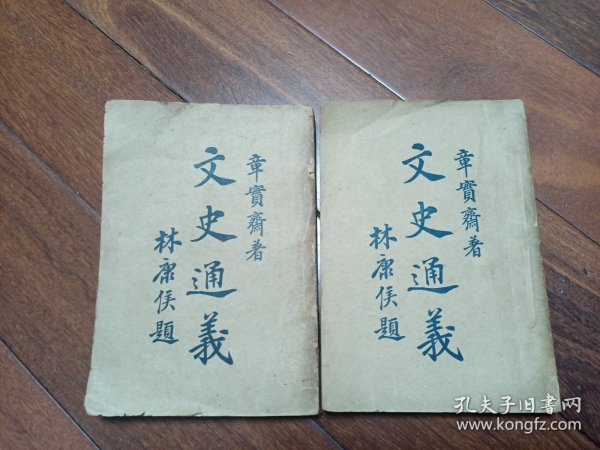 章實齋著
文史通義
林康侯題
章實齋著
文史通義
林康侯題
孔夫子旧書网
www.kongfz.com